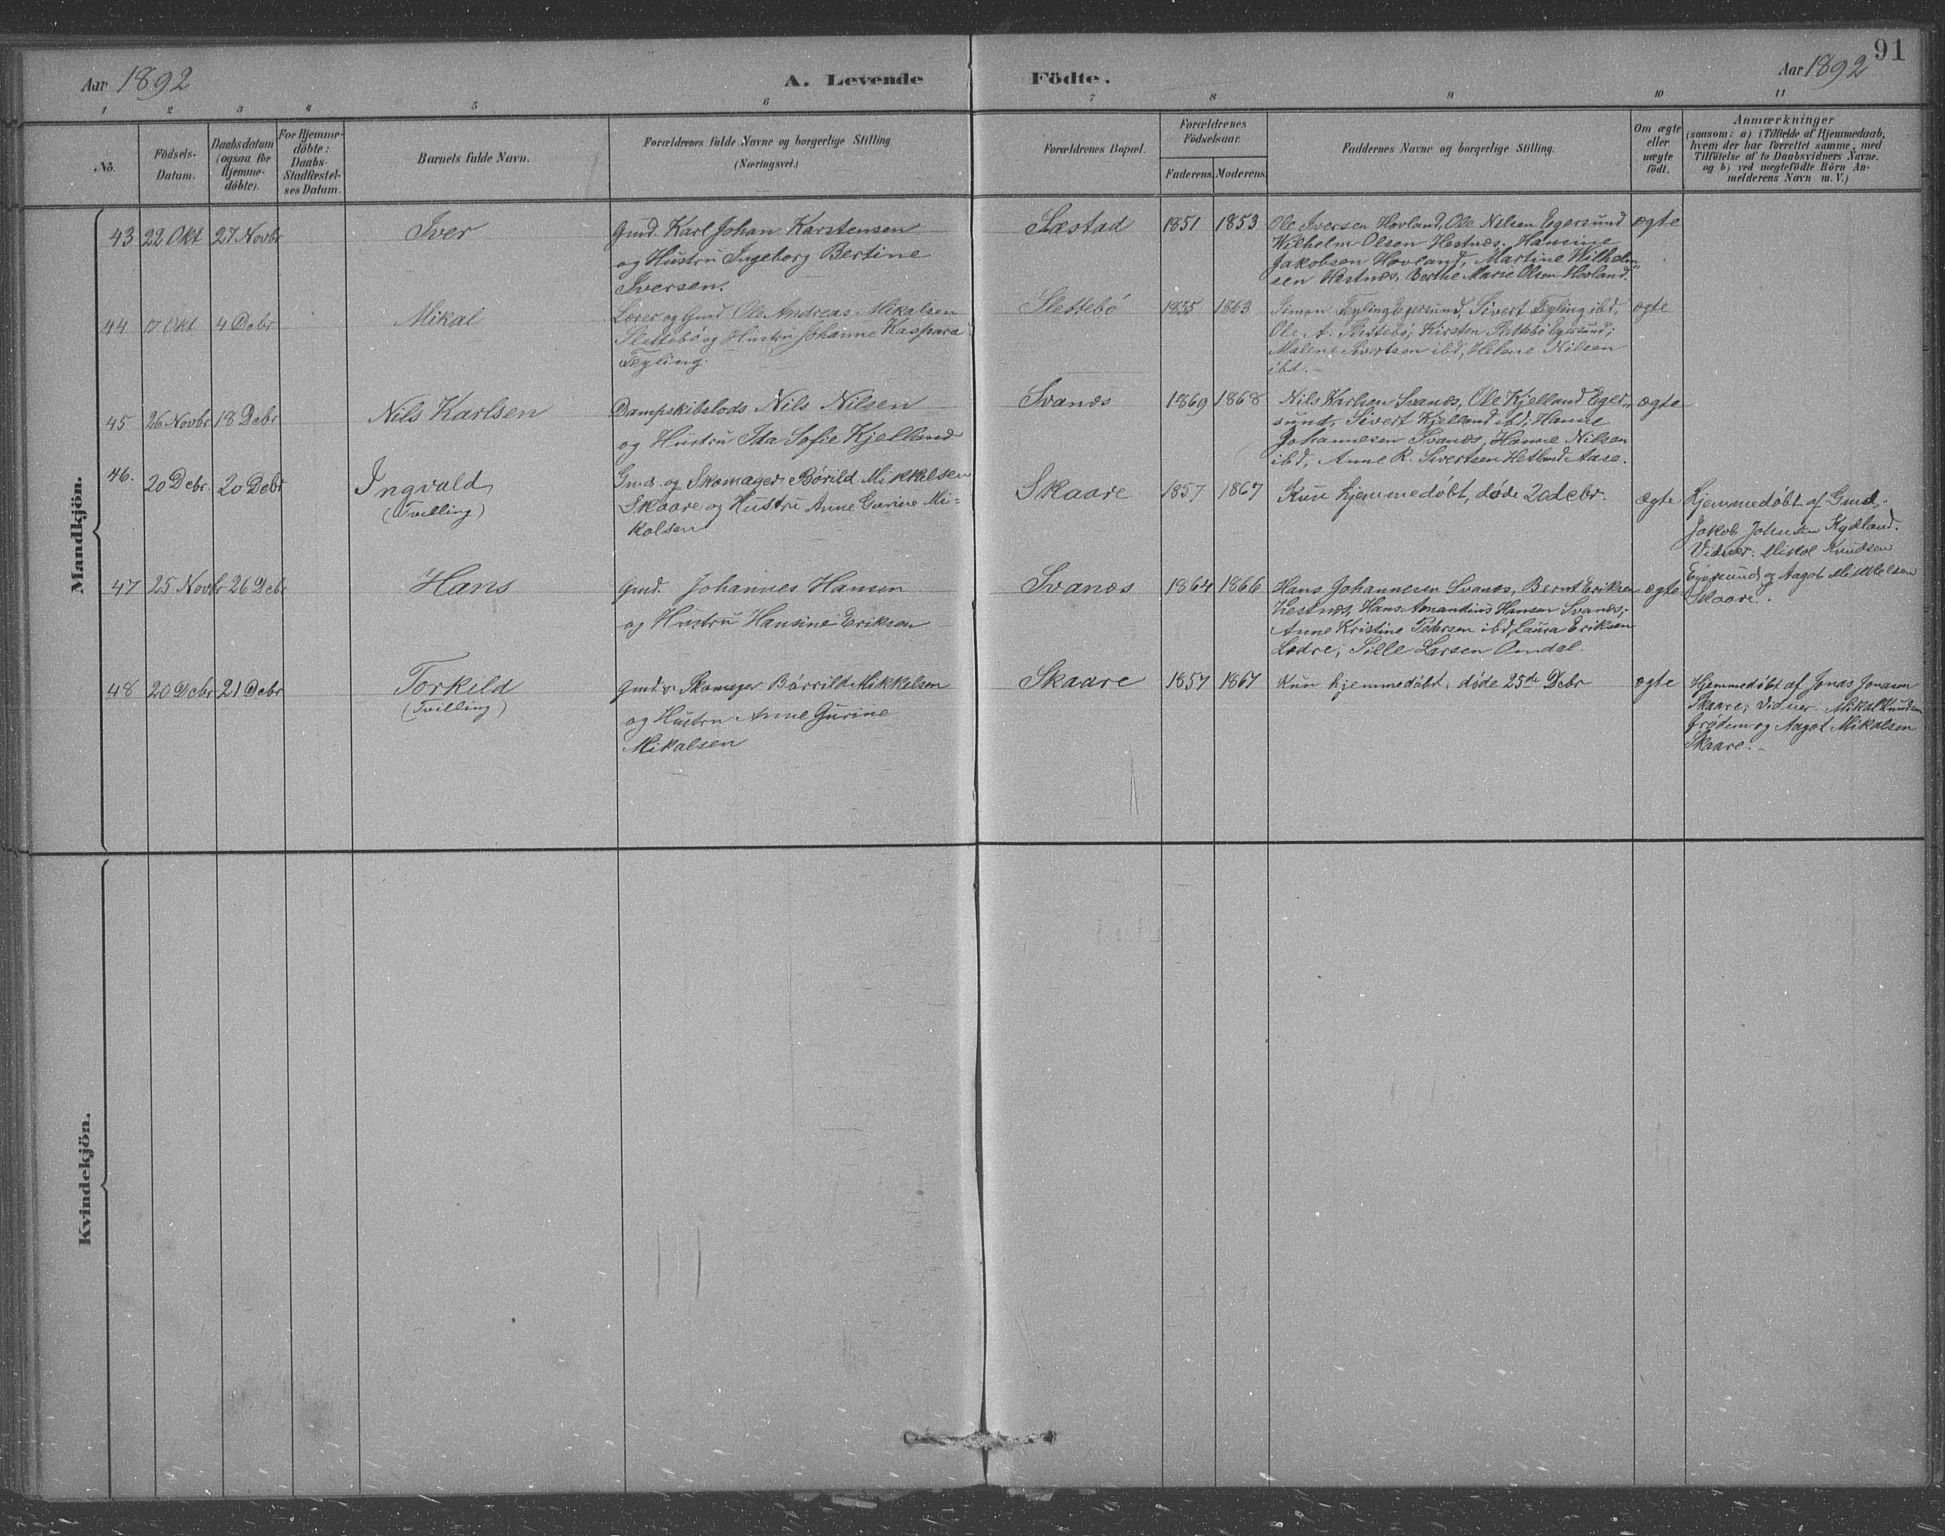 91
Aar 1892 A. Levende Födte. Aar 1892
1 2 3 4 5 6 7 8 9 10 11
No.
Födsels-
Datum.
Daabsdatum
(ogsaa for
Hjemme-
döbte).
For Hjemme-
döbte:
Daabs-
Stadfæstel-
ses Datum.
Barnets fulde Navn.
Forældrenes fulde Navne og borgerlige Stilling
(Næringsvei.)
Forældrenes Bopæl.
Forældrenes
Födselsaar.
Faderens. Moderens.
Faddernes Navne og borgerlige Stilling.
Om ægte
eller
uægte
födt.
Anmærkninger
(saasom: a) i Tilfælde af Hjemmedaab,
hvem der har forrettet samme, med
Tilföielse af to Daabsvidners Navne,
og b) ved uegtefödte Börn An-
melderens Navn m. V.)
Mandkjön.
43 22 Okt 27 Novbr
Iver
Gmd. Karl Johan Karstensen
og Hustru Ingeborg Bertine
Iversen.
Sæstad
1851 1853
Ole Iversen Hovland, Ole Nilsen Egersund
Wilhelm Olsen Hestnæs. Hansine
Jakobsen Hovland, Martine Wilhelm-
sen Hestnæs, Berthe Marie Olsen Hovland.
ægte
44 17 Okt 4 Debr
Mikal
Lærer og Gmd. Ole Andreas Mikalsen
Slettebø og Hustru Johanne Kaspara
Tegling.
Slettebö
1855 1863
Simon Tegling Egersund, Sivert Tegling ibd,
Ole A. Slettebø, Kirsten Slettebø Egersund;
Malene Sivertsen ibd, Helene Nilsen
ibd.-
ægte
45 26 Novbr 18 Debr
Nils Karlsen
Dampskibslods Nils Nilsen
og Hustru Ida Sofie Kjelland
Svanæs
1869 1868
Nils Karlsen Svanæs, Ole Kjelland Eger-
sund, Sivert Kjelland ibd; Hanne
Johannesen Svanæs, Hanne Nilsen
ibd, Anne R. Sivertsen Hetland Aase.
ægte
46. 20 Debr. 20 Debr
Ingvald
(Tvilling)
Gmd. og Skomager Børild Mikkelsen
Skaare og Hustru Anne Gurine Mi-
kalsen
Skaare
1857 1867
Kun hjemmedøbt, døde 20debr.
ægte
Hjemmedøbt af Gmd.
Jakob Johnsen Kydland.
Vidner: Mikal Knudsen
Egersund og Aagot Mikkelsen
Skaare.
47 25 Novbr 26 Debr
Hans
Gmd. Johannes Hansen
og Hustru Hansine Eriksen
Svanæs
1864 1866
Hans Johannesen Svanæs, Bernt Eriksen
Hestnæs, Hans Amandius Hansen Svanæs;
Anne Kristine Pedersen ibd, Laura Eriksen
Lædre; Sille Larsen Omdal.
ægte
48 20 Debr 21 Debr
Torkild
(Tvilling)
Gmd. Skomager Børrild Mikkelsen
og Hustru Anne Gurine
Mikalsen
Skaare
1857 1867
Kun hjemmedøbt, døde 25de Debr
ægte
Hjemmedøbt af Jonas Jonasen
Skaare; Vidner. Mikal Knudsen
Grødem og Aagot Mikalsen
Skaare.-
Kvindekjön.